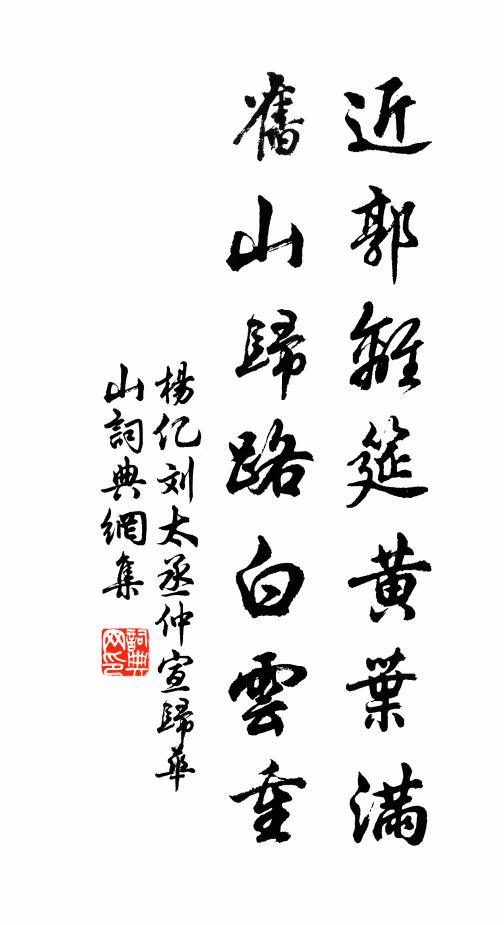 近郭離筵黃葉滿
舊山歸路白雲重
楊亿刘太丞仲宣歸華
山詞典網集
詞典网印